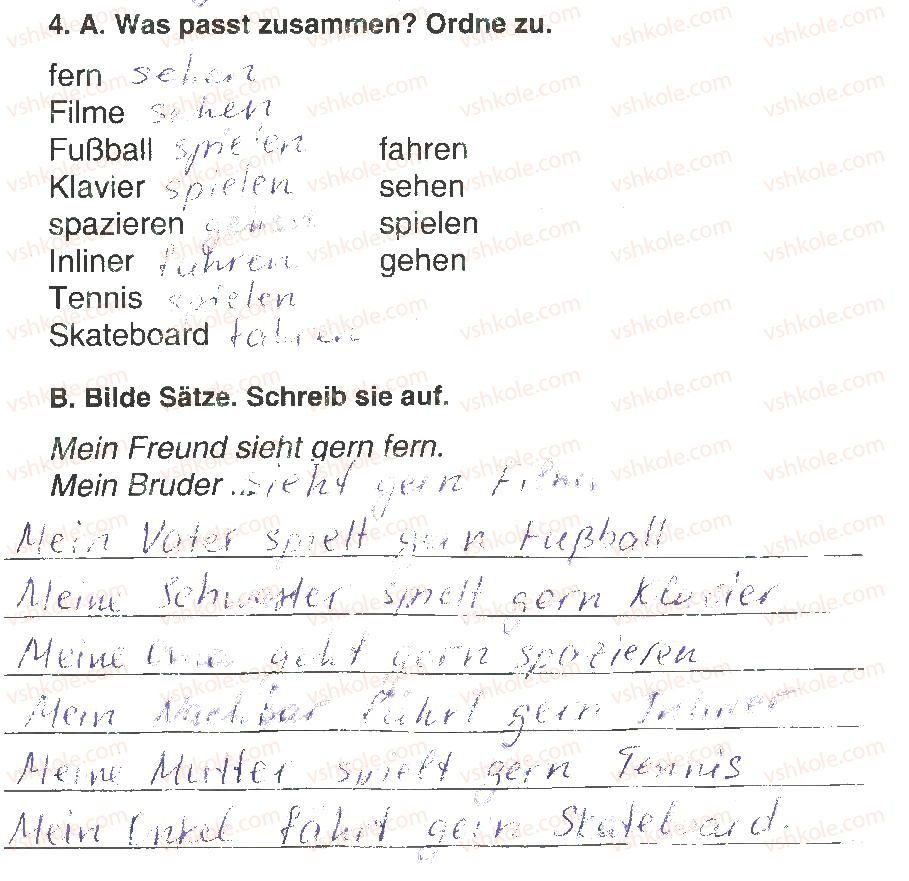 4. A. Was passt zusammen? Ordne zu.
fern sehen
Filme sehen
Fußball spielen fahren
Klavier spielen sehen
spazieren gehen spielen
Inliner fahren gehen
Tennis spielen
Skateboard fahren
B. Bilde Sätze. Schreib sie auf.
Mein Freund sieht gern fern.
Mein Bruder ... sieht gern Filme.
Mein Vater spielt gern Fußball
Meine Schwester spielt gern Klavier
Meine Oma geht gern spazieren
Mein Nachbar fährt gern Inliner
Meine Mutter spielt gern Tennis
Mein Onkel fährt gern Skateboard.
vshkole.com